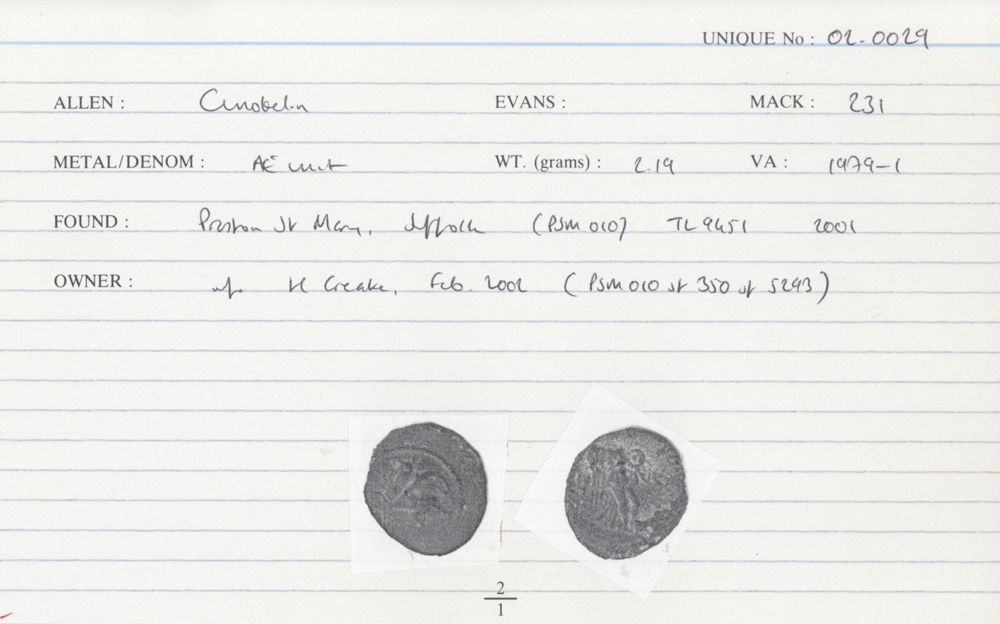 UNIQUE No : 02-0029
ALLEN : Cunobelin EVANS : MACK : 231
METAL/DENOM : AE unit WT. (grams) : 2.19 VA : 1979-1
FOUND : Preston St Mary, Suffolk (PSM 010) TL 9451 2001
OWNER : Creake, Feb. 2002 (PSM 010 350 5293)
2
1